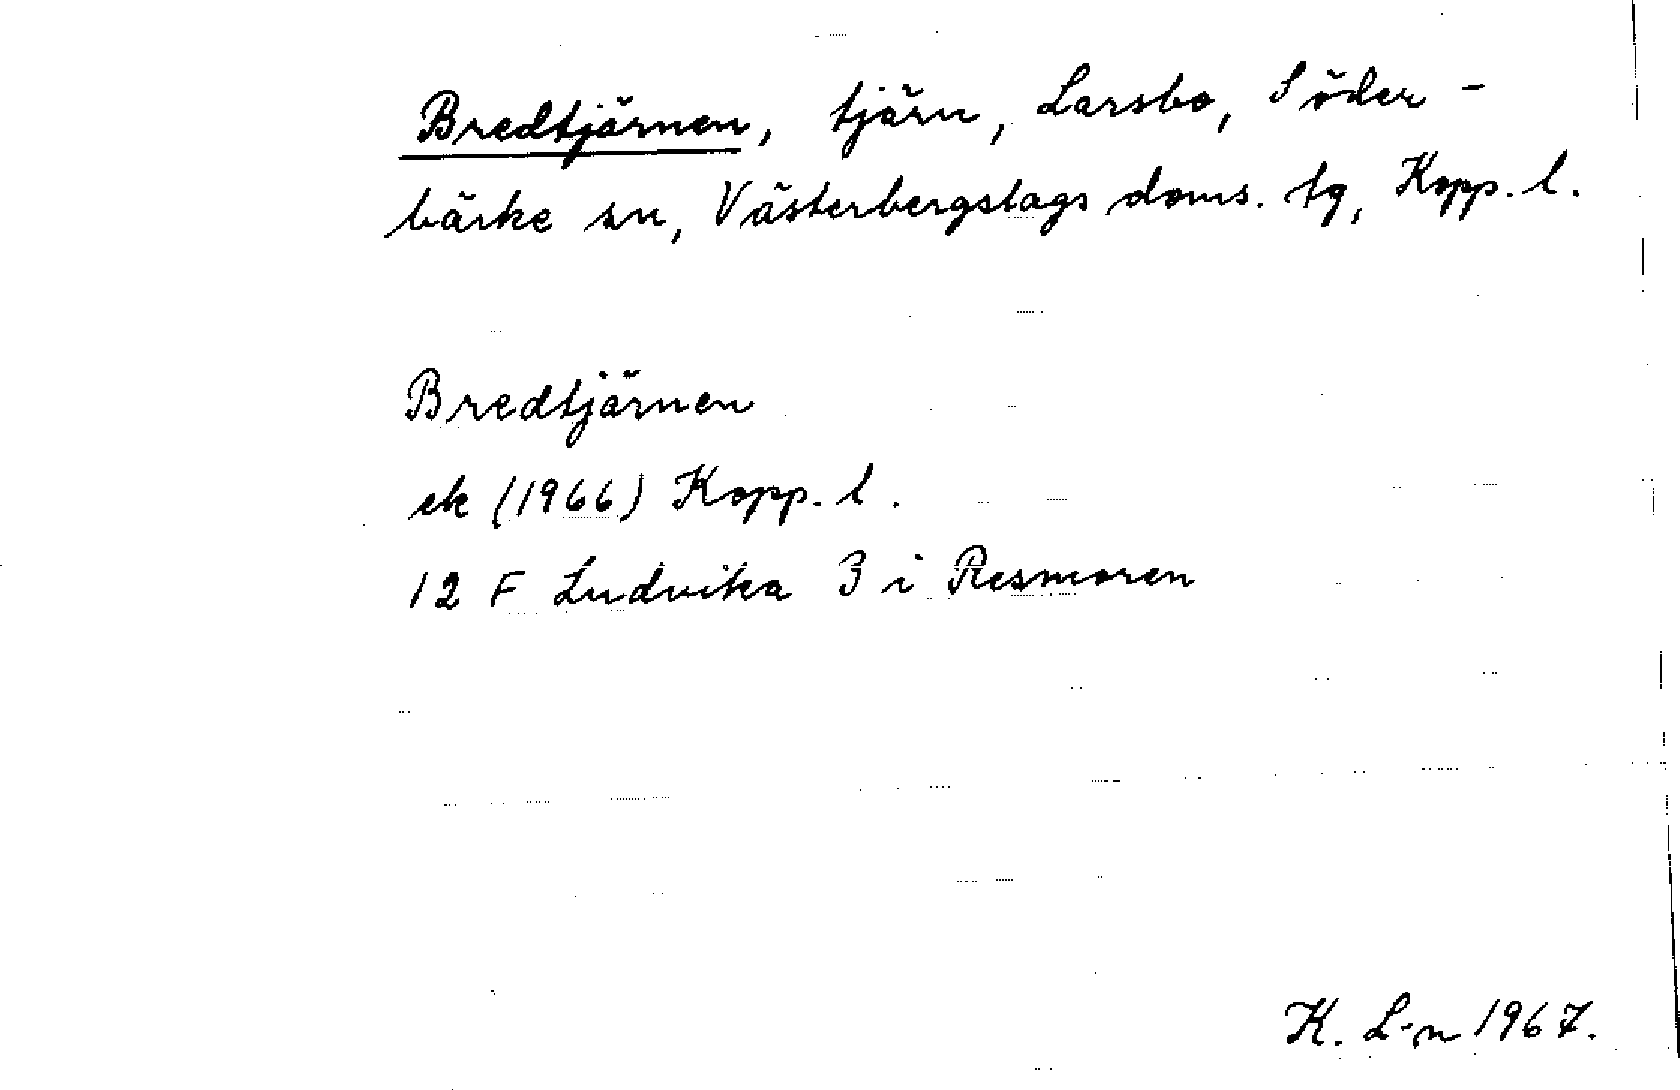 Bredtjärnen, tjärn, Larsbo, Söder-
bärke sn, Västerbergslags doms. tg, Kopp. l.
Bredtjärnen
ek (1966) Kopp. l.
12 F Ludvika 3 i Resmoren
K. L-n 1967.